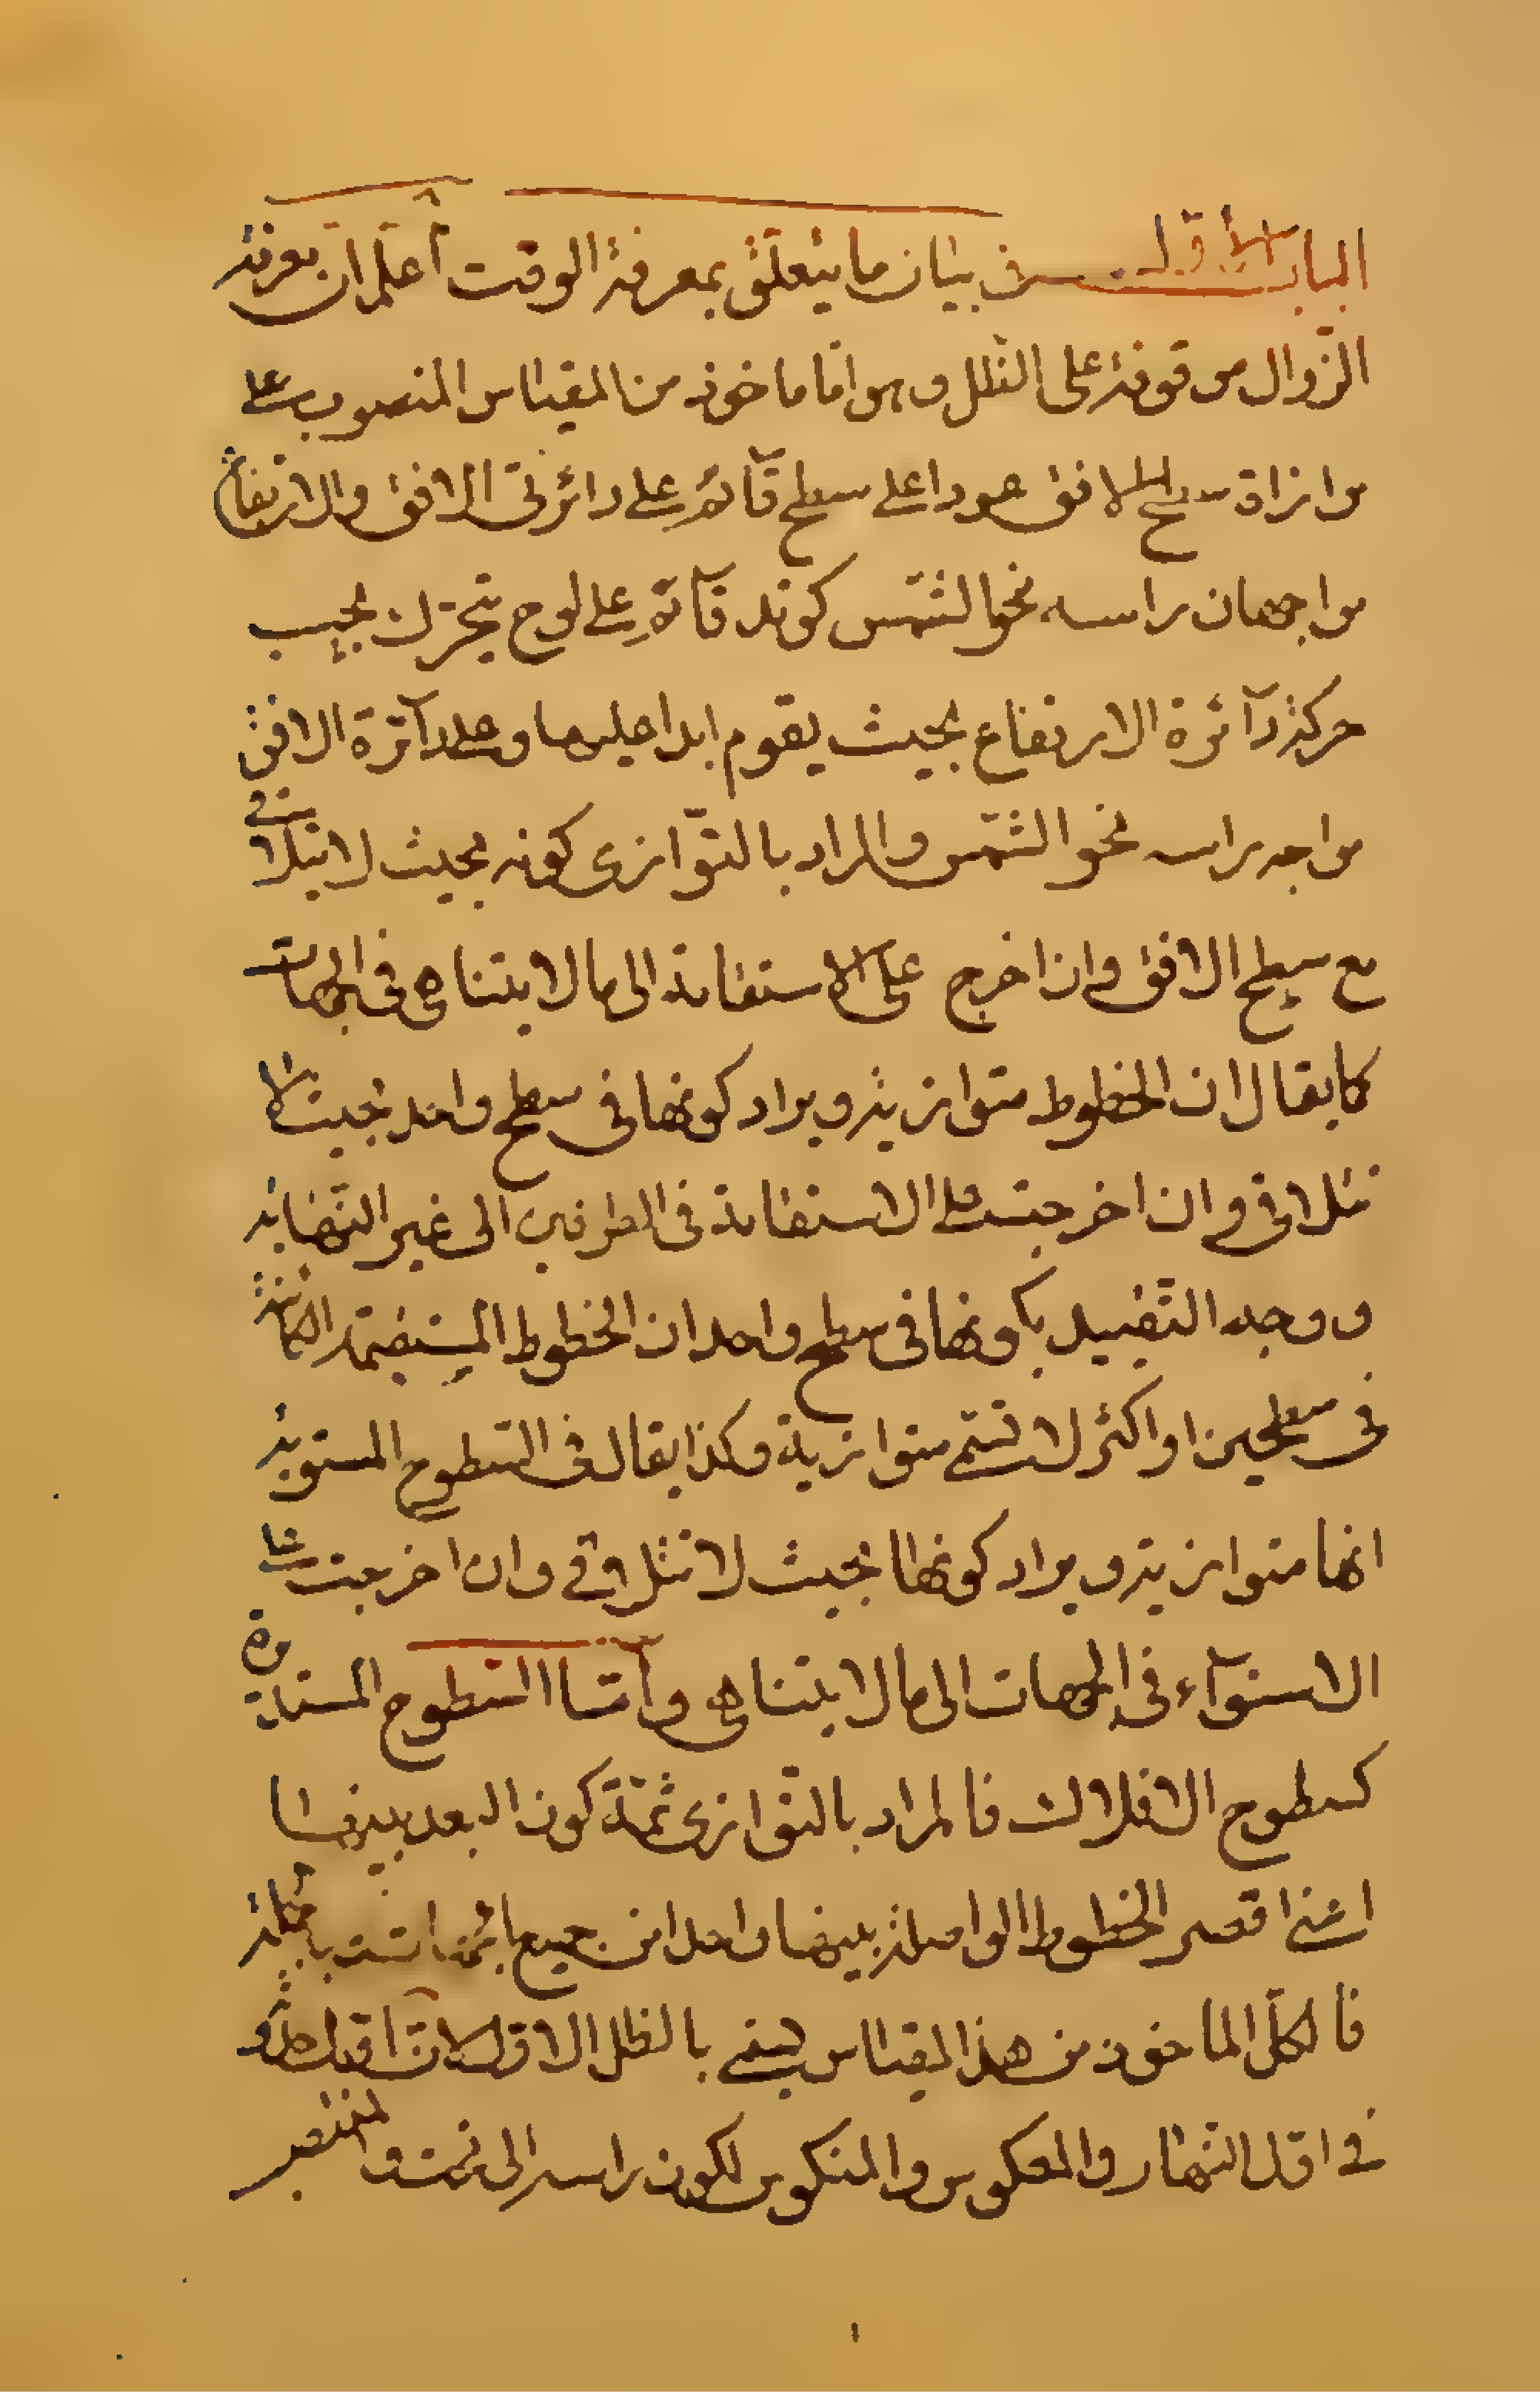 الباب الأول في بيان ما يتعلق بمعرفة الوقت أعلم ان معرفة
الزوال موقوفة على الظل وهو اما ماخوذ من المقياس المنصوب على
موازاة سطح الافق عمودا على سطح قآئم على دائرتى الافق والارتفاع
مواجها براسه نحو الشمس كونه قآئم على لوح يتحرك بحسب
حركة دآئرة الارتفاع بحيث يقوم ابدا عليها وعلى دآئرة الافق
مواجه براسه نحو الشمس والمراد بالتوازى كونه بحيث لا يتلاقى
مع سطح الافق وان اخرج على الاستقامة الى ما لا يتناهى فى الجهات
كما يقال ان الخطوط متوازية ويراد كونها فى سطح واحد بحيث لا
تتلاقى وان اخرجت على الاستقامة فى الطرفين الى غير النهاية
ووجه التقييد بكونها فى سطح واحد ان الخطوط المستقيمة الكائنة
فى سطحين او اكثر لا تسمى متوازية وكذا يقال فى السطوح المستوية
انها متوازية ويراد كونها بحيث لا تتلاقى وان اخرجت على
الاستوآء فى الجهات الى ما لا يتناهى وأما السطوح المستديرة
كسطوح الافلاك فالمراد بالتوازى ثمة كون البعد بينها
اعنى اقصر الخطوط الواصلة بينها واحدا من جميع الجهات وبالجملة
فالظل الماخوذ من هذا المقياس يسمى بالظل الاول لانه اول حدوثه
فى اول النهار والمعكوس والمنكوس لكون راسه الى تحت والمنتصب
١